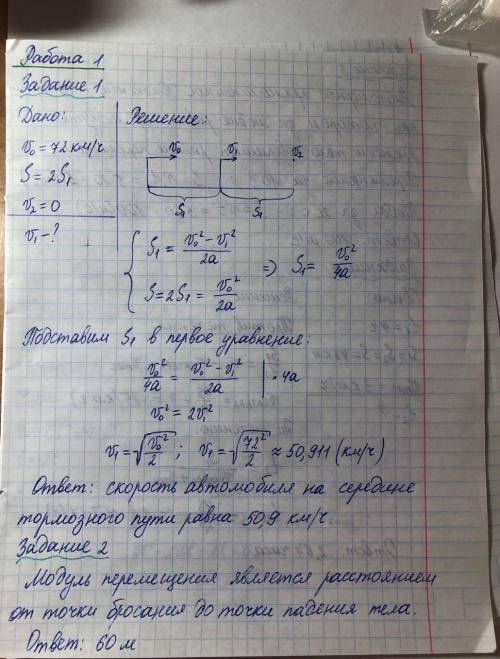 Работа 1
Задание 1
Дано: Решение:
v₀ = 72 км/ч
S = 2S₁
v₂ = 0
v₁ - ?
v₀ v₁ v₂
S₁ S₁
S₁ = (v₀² - v₁²)/2a
S = 2S₁ = v₀²/2a => S₁ = v₀²/4a
Подставим S₁ в первое уравнение:
v₀²/4a = (v₀² - v₁²)/2a | · 4a
v₀² = 2v₁²
v₁ = √(v₀²/2) ; v₁ = √(72²/2) ≈ 50,911 (км/ч)
Ответ: скорость автомобиля на середине
тормозного пути равна 50,9 км/ч.
Задание 2
Модуль перемещения является расстоянием
от точки бросания до точки падения тела.
Ответ: 60 м